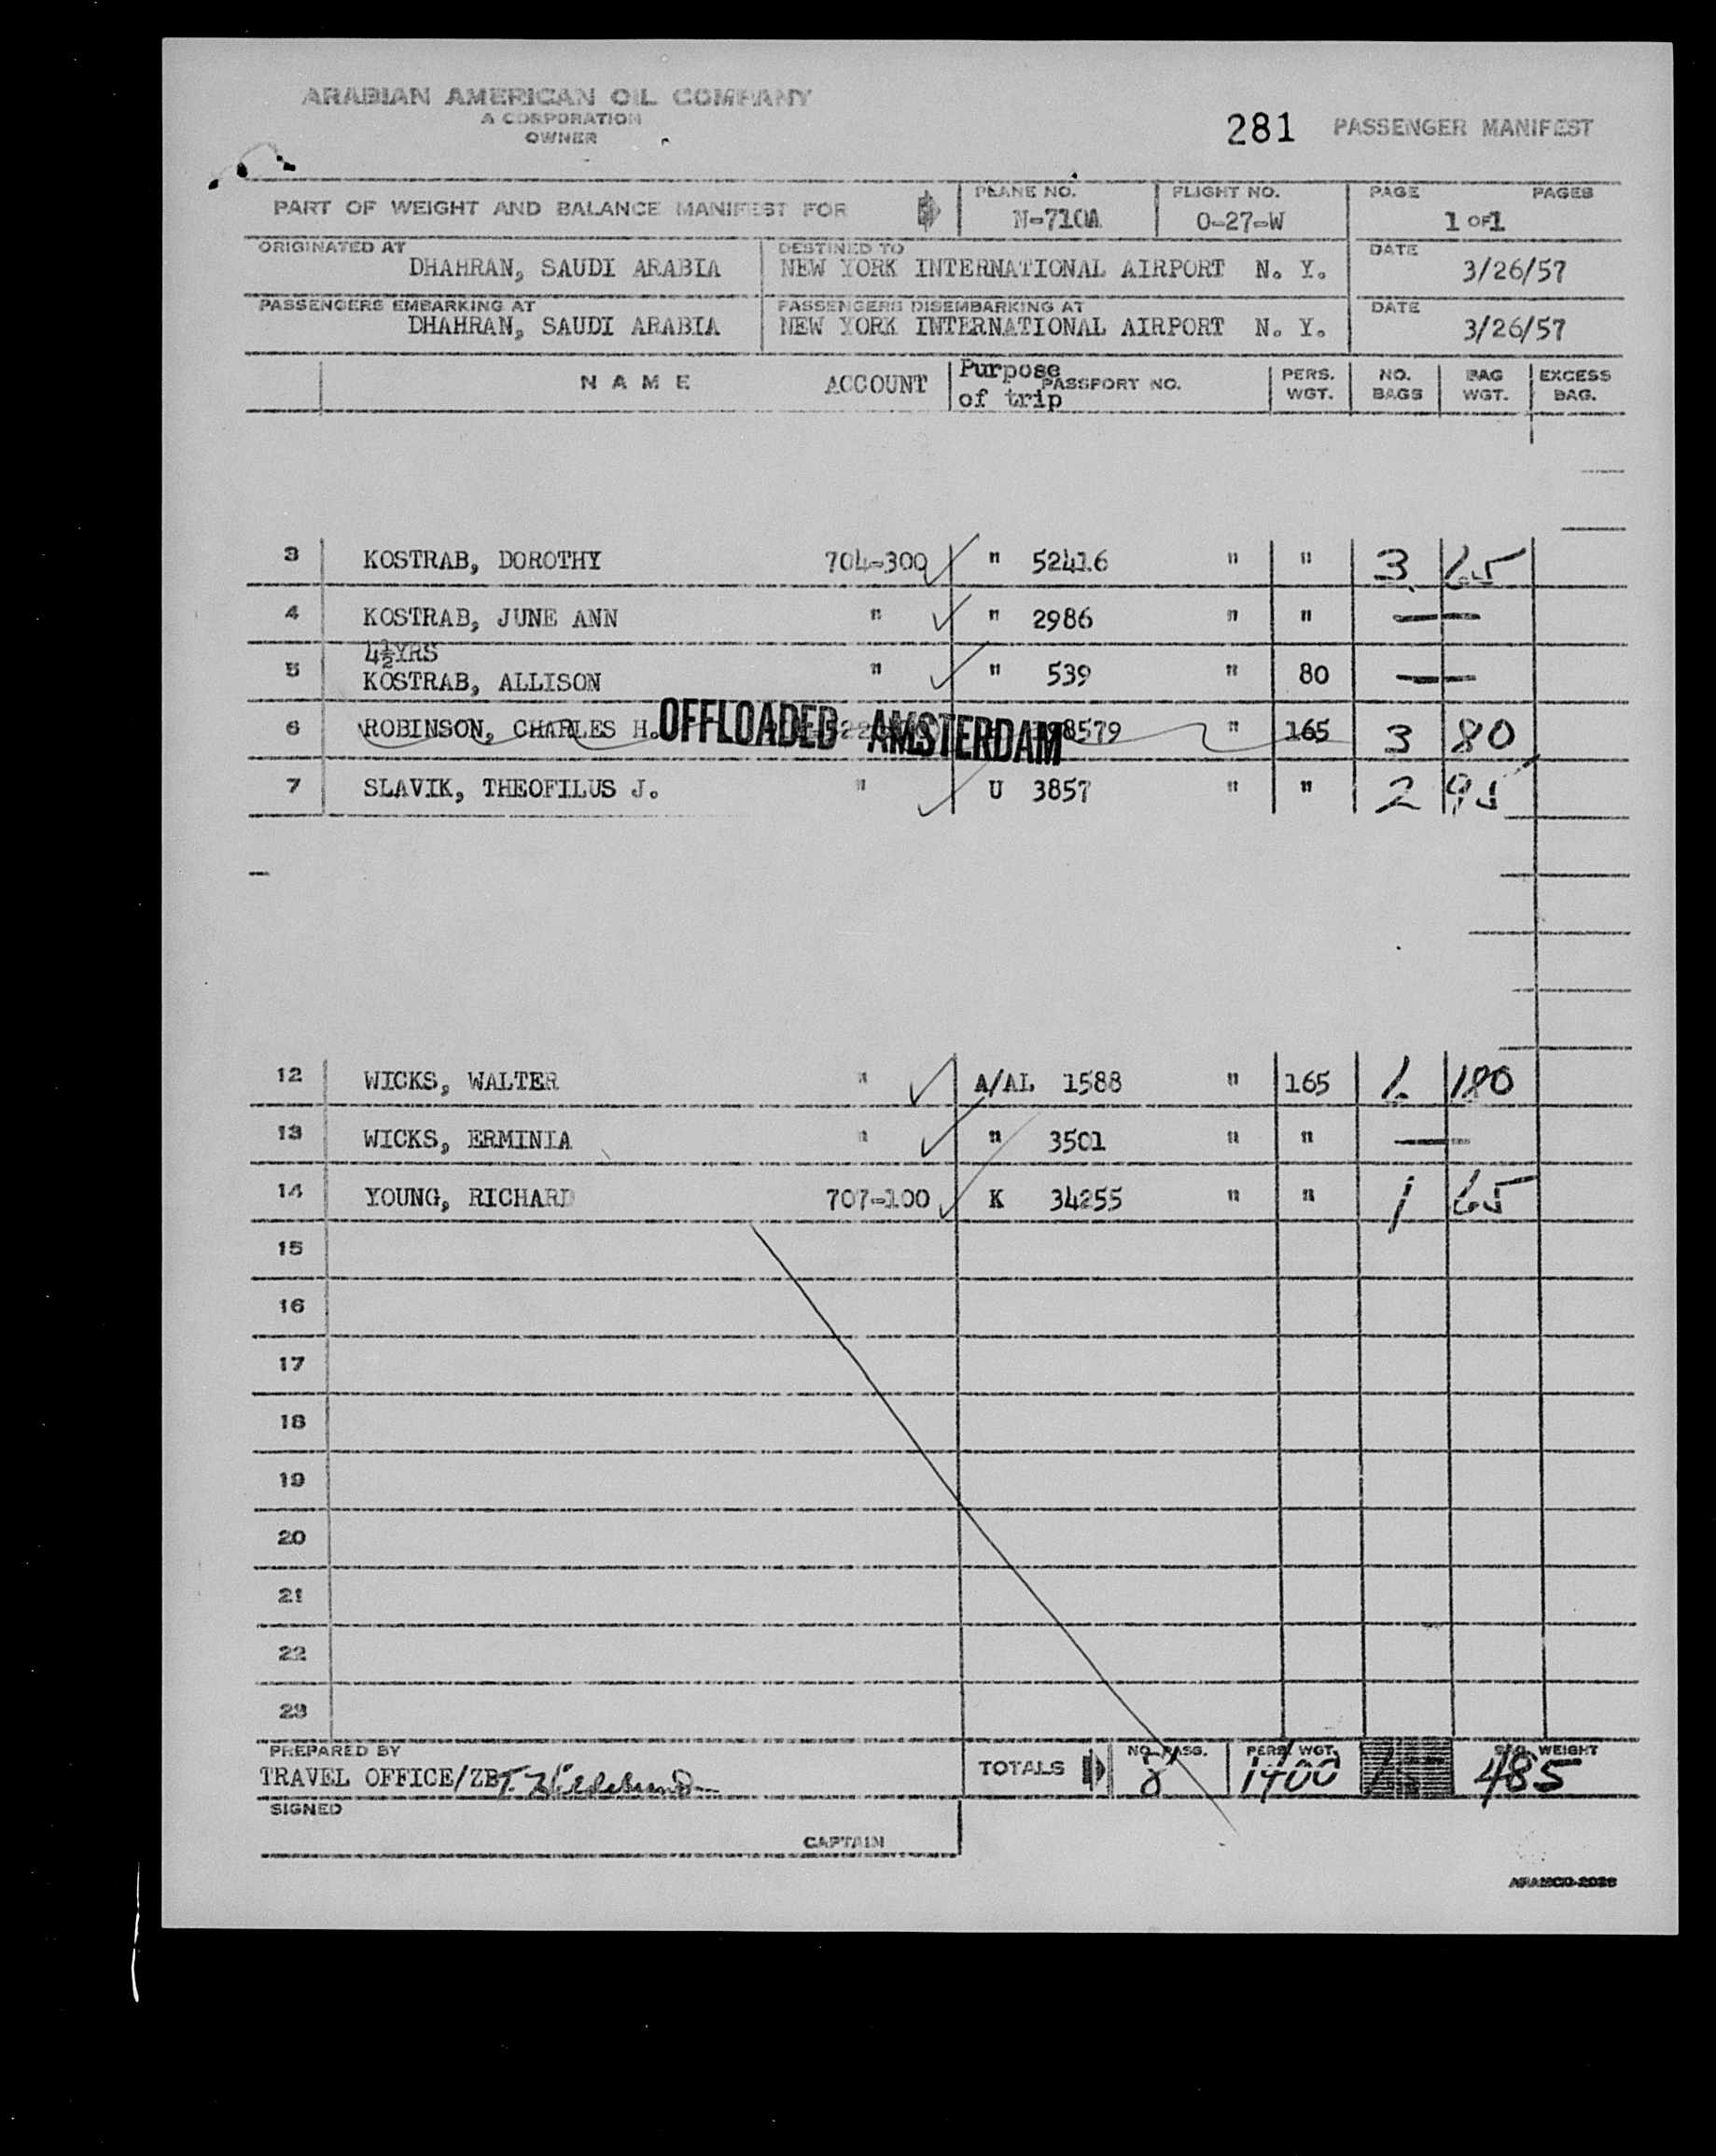 ARABIAN AMERICAN OIL COMPANY
A CORPORATION
OWNER
281 PASSENGER MANIFEST
PART OF WEIGHT AND BALANCE MANIFEST FOR
PLANE NO.
N-710A
FLIGHT NO.
0-27-W
PAGE PAGES
1 OF 1
ORIGINATED AT
DHAHRAN, SAUDI ARABIA
DESTINED TO
NEW YORK INTERNATIONAL AIRPORT N. Y.
DATE
3/26/57
PASSENGERS EMBARKING AT
DHAHRAN, SAUDI ARABIA
PASSENGERS DISEMBARKING AT
NEW YORK INTERNATIONAL AIRPORT N. Y.
DATE
3/26/57
NAME ACCOUNT Purpose of trip PASSPORT NO. PERS. WGT. NO. BAGS BAG WGT. EXCESS BAG.
3 KOSTRAB, DOROTHY 704-300 " 52416 " " 3 65
4 KOSTRAB, JUNE ANN " " 2986 " "
4½YRS
5 KOSTRAB, ALLISON " " 539 " 80
6 ROBINSON, CHARLES H. OFFLOADED AMSTERDAM 8579 " 165 3 80
7 SLAVIK, THEOFILUS J. " U 3857 " " 2 95
12 WICKS, WALTER " A/AL 1588 " 165 6 180
13 WICKS, ERMINIA " " 3501 " "
14 YOUNG, RICHARD 707-100 K 34255 " " 1 65
15
16
17
18
19
20
21
22
23
PREPARED BY
TRAVEL OFFICE/ZB
TOTALS
NO. PASG.
8
PERS. WGT.
1400
15
BAG. WEIGHT
485
SIGNED
CAPTAIN
ARAMCO-2028